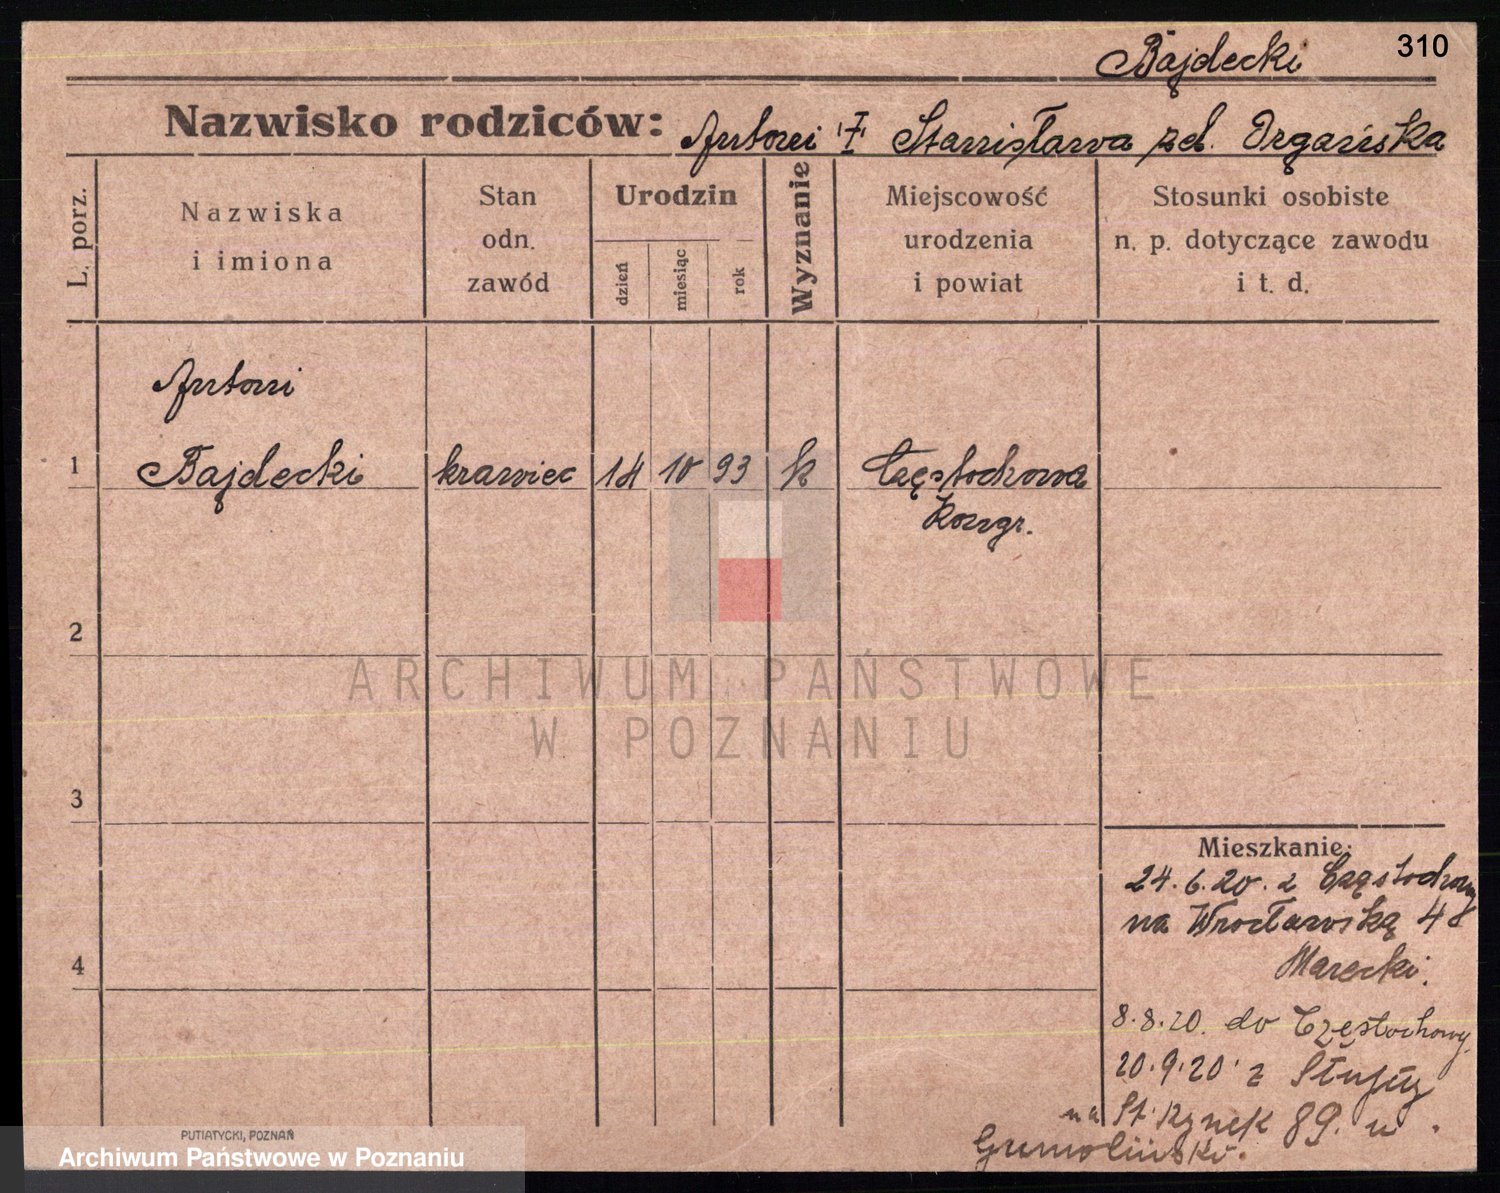 310
Bajdecki
Nazwisko rodziców: Antoni i Stanisława zd. Organiska
L. porz.
Nazwiska i imiona
Stan odn. zawód
Urodzin
dzień
miesiąc
rok
Wyznanie
Miejscowość urodzenia i powiat
Stosunki osobiste n. p. dotyczące zawodu i t. d.
Antoni
1 Bajdecki krawiec 14 10 93 k Częstochowa
Kongr.
2
ARCHIWUM PAŃSTWOWE
W POZNANIU
3
Mieszkanie:
24.6.20. z Częstochowy
na Wrocławską 48
4
Marecki.
8.8.20. do Częstochowy.
20.9.20 z
na St. Rynek 89. u
PUTIATYCKI, POZNAŃ
Archiwum Państwowe w Poznaniu